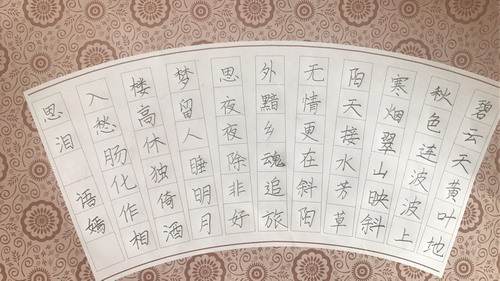 碧云天黄叶地
秋色连波波上
寒烟翠山映斜
阳天接水芳草
无情更在斜阳
外黯乡魂追旅
思夜夜除非好
梦留人睡明月
楼高休独倚酒
入愁肠化作相
思泪 语嫣